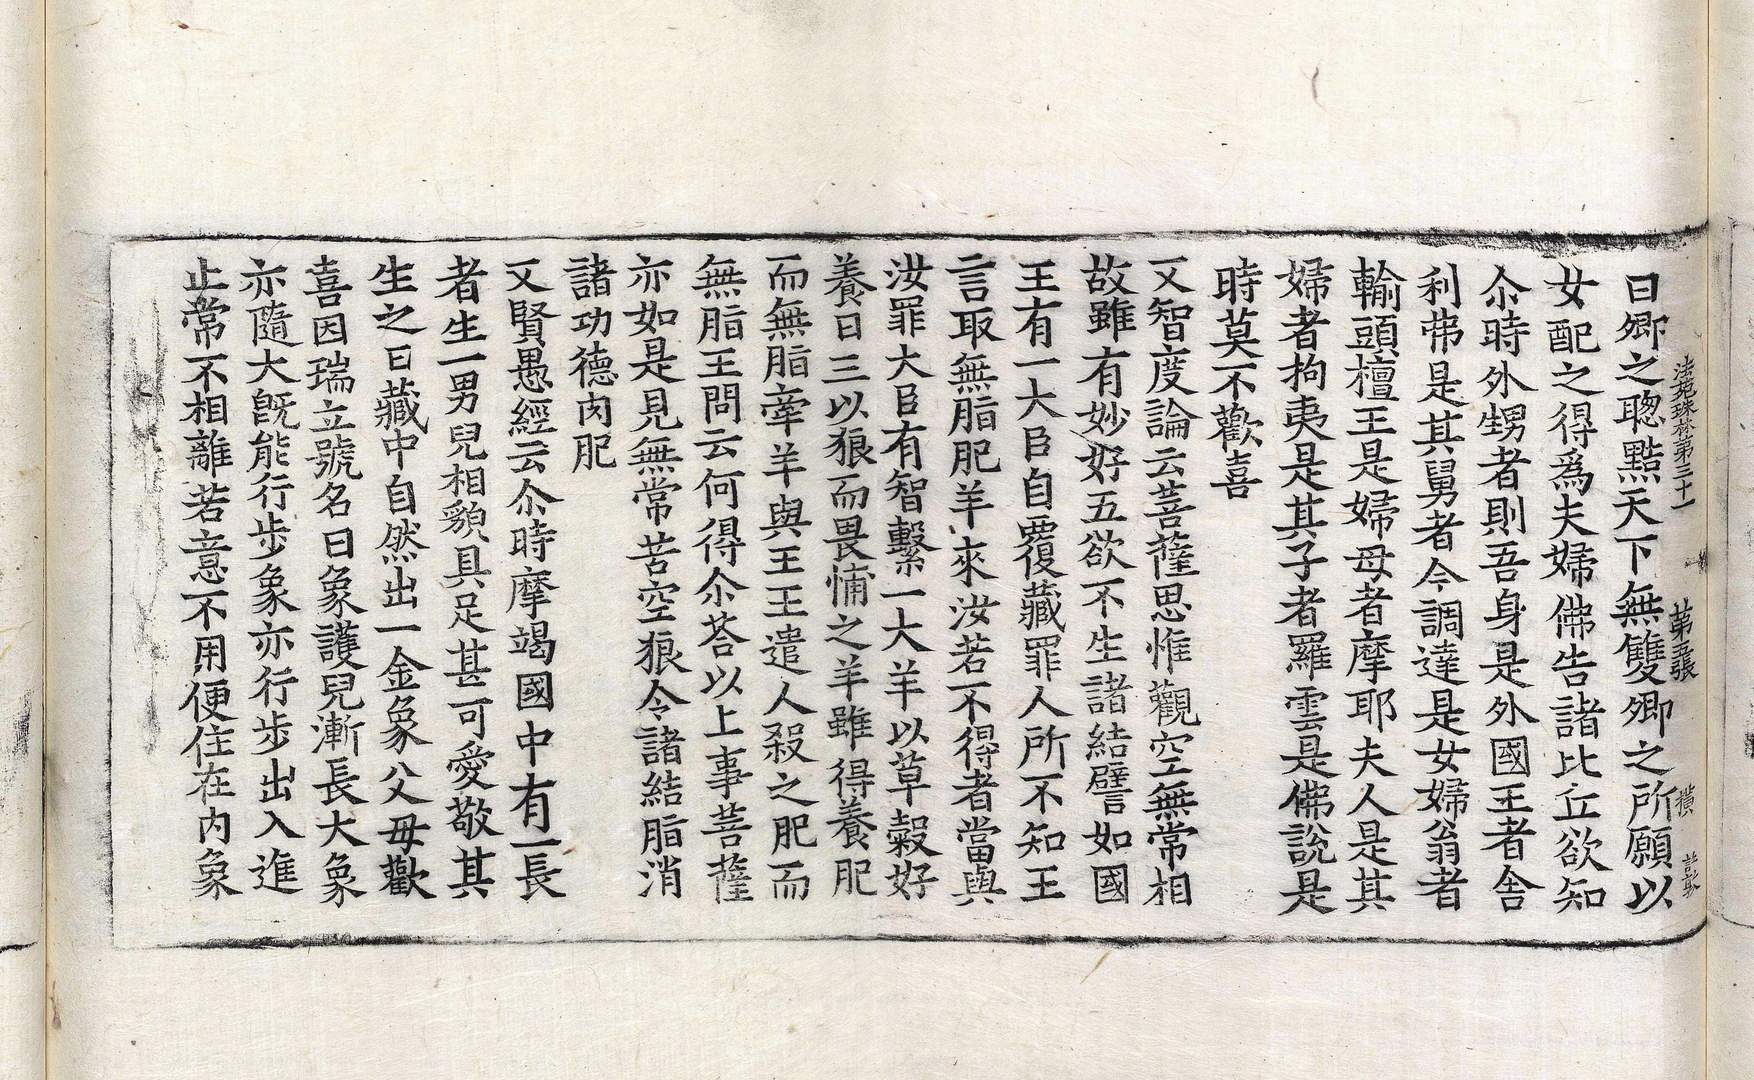 法苑珠林第三十一 第五張 橫
曰卿之聰黠天下無雙卿之所願以
女配之得爲夫婦佛告諸比丘欲知
尒時外甥者則吾身是外國王者舍
利弗是其舅者今調達是女婦翁者
輸頭檀王是婦母者摩耶夫人是其
婦者拘夷是其子者羅雲是佛說是
時莫不歡喜
又智度論云菩薩思惟觀空無常相
故雖有妙好五欲不生諸結譬如國
王有一大臣自覆藏罪人所不知王
言取無脂肥羊來汝若不得者當與
汝罪大臣有智繫一大羊以草穀好
養日三以狼而畏怖之羊雖得養肥
而無脂牽羊與王王遣人殺之肥而
無脂王問云何得尒荅以上事菩薩
亦如是見無常苦空狼令諸結脂消
諸功德肉肥
又賢愚經云尒時摩竭國中有一長
者生一男兒相貌具足甚可愛敬其
生之日藏中自然出一金象父母歡
喜因瑞立號名曰象護兒漸長大象
亦隨大旣能行步象亦行步出入進
止常不相離若意不用便住在內象